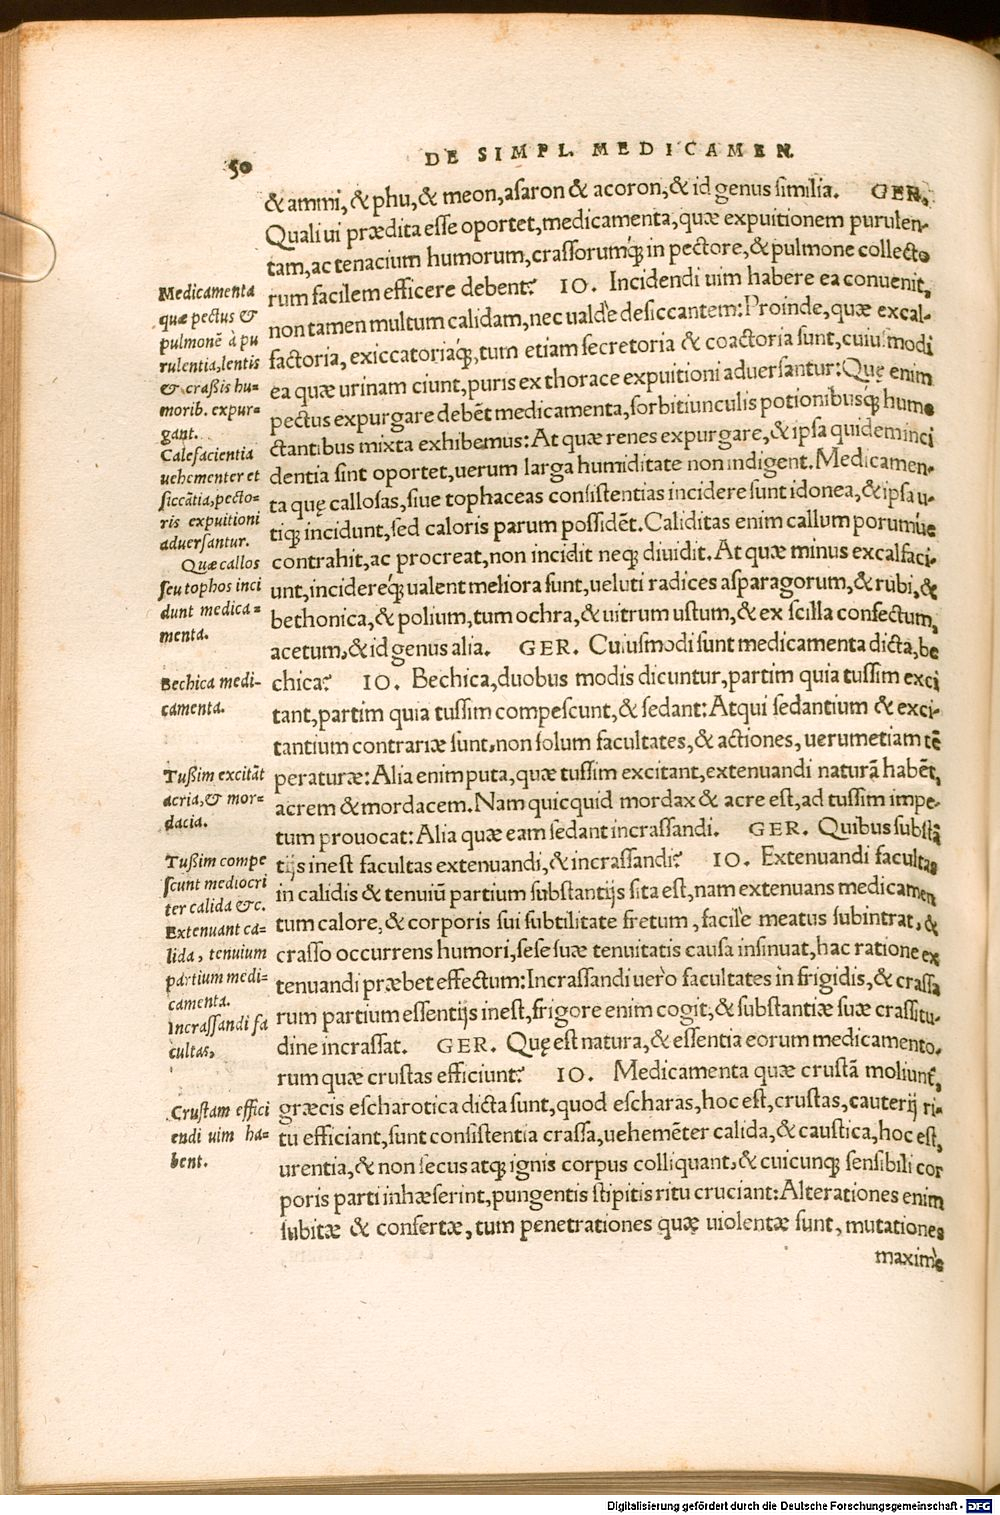 50
DE SIMPL. MEDICAMEN.
& ammi, & phu, & meon, asaron & acoron, & id genus similia. GER.
Quali ui prædita esse oportet, medicamenta, quæ expuitionem purulen-
tam, ac tenacium humorum, crassorumq́; in pectore, & pulmone collecto
rum facilem efficere debent? IO. Incidendi uim habere ea conuenit,
non tamen multum calidam, nec ualdè desiccantem: Proinde, quæ excal-
factoria, exiccatoriaq́;, tum etiam secretoria & coactoria sunt, cuiusmodi
ea quæ urinam ciunt, puris ex thorace expuitioni aduersantur: Quę enim
pectus expurgare debẽt medicamenta, sorbitiunculis potionibusq́; hume
ctantibus mixta exhibemus: At quæ renes expurgare, & ipsa quidem inci
dentia sint oportet, uerum larga humiditate non indigent. Medicamen-
ta quę callosas, siue tophaceas consistentias incidere sunt idonea, & ipsa u-
tiq; incidunt, sed caloris parum possidẽt. Caliditas enim callum porumúe
contrahit, ac procreat, non incidit neq; diuidit. At quæ minus excalfaci-
unt, incidereq́; ualent meliora sunt, ueluti radices asparagorum, & rubi, &
bethonica, & polium, tum ochra, & uitrum ustum, & ex scilla confectum,
acetum, & id genus alia. GER. Cuiusmodi sunt medicamenta dicta, be
chica? IO. Bechica, duobus modis dicuntur, partim quia tussim exci
tant, partim quia tussim compescunt, & sedant: Atqui sedantium & exci-
tantium contrariæ sunt, non solum facultates, & actiones, uerumetiam tẽ
peraturæ: Alia enim puta, quæ tussim excitant, extenuandi naturã habẽt,
acrem & mordacem. Nam quicquid mordax & acre est, ad tussim impe-
tum prouocat: Alia quæ eam sedant incrassandi. GER. Quibus substã
tijs inest facultas extenuandi, & incrassandi? IO. Extenuandi facultas
in calidis & tenuiũ partium substantijs sita est, nam extenuans medicamen
tum calore, & corporis sui subtilitate fretum, facilè meatus subintrat, &
crasso occurrens humori, sese suæ tenuitatis causa insinuat, hac ratione ex
tenuandi præbet effectum: Incrassandi uerò facultates in frigidis, & crassa
rum partium essentijs inest, frigore enim cogit, & substantiæ suæ crassitu-
dine incrassat. GER. Quę est natura, & essentia eorum medicamento-
rum quæ crustas efficiunt? IO. Medicamenta quæ crustã moliunt,
græcis escharotica dicta sunt, quod escharas, hoc est, crustas, cauterij ri-
tu efficiant, sunt consistentia crassa, uehemẽter calida, & caustica, hoc est,
urentia, & non secus atq; ignis corpus colliquant, & cuicunq; sensibili cor
poris parti inhæserint, pungentis stipitis ritu cruciant: Alterationes enim
subitæ & confertæ, tum penetrationes quæ uiolentæ sunt, mutationes
maximè
Medicamenta
quæ pectus &
pulmonẽ à pu
rulentia, lentis
& crassis hu-
morib. expur-
gant.
Calefacientia
uehementer et
siccãtia, pecto-
ris expuitioni
aduersantur.
Quæ callos
seu tophos inci
dunt medica-
menta.
Bechica medi-
camenta.
Tussim excitãt
acria, & mor-
dacia.
Tussim compe
scunt mediocri
ter calida &c.
Extenuant ca-
lida, tenuium
partium medi-
camenta.
Incrassandi fa
cultas,
Crustam effici
endi uim ha-
bent.
Digitalisierung gefördert durch die Deutsche Forschungsgemeinschaft - DFG